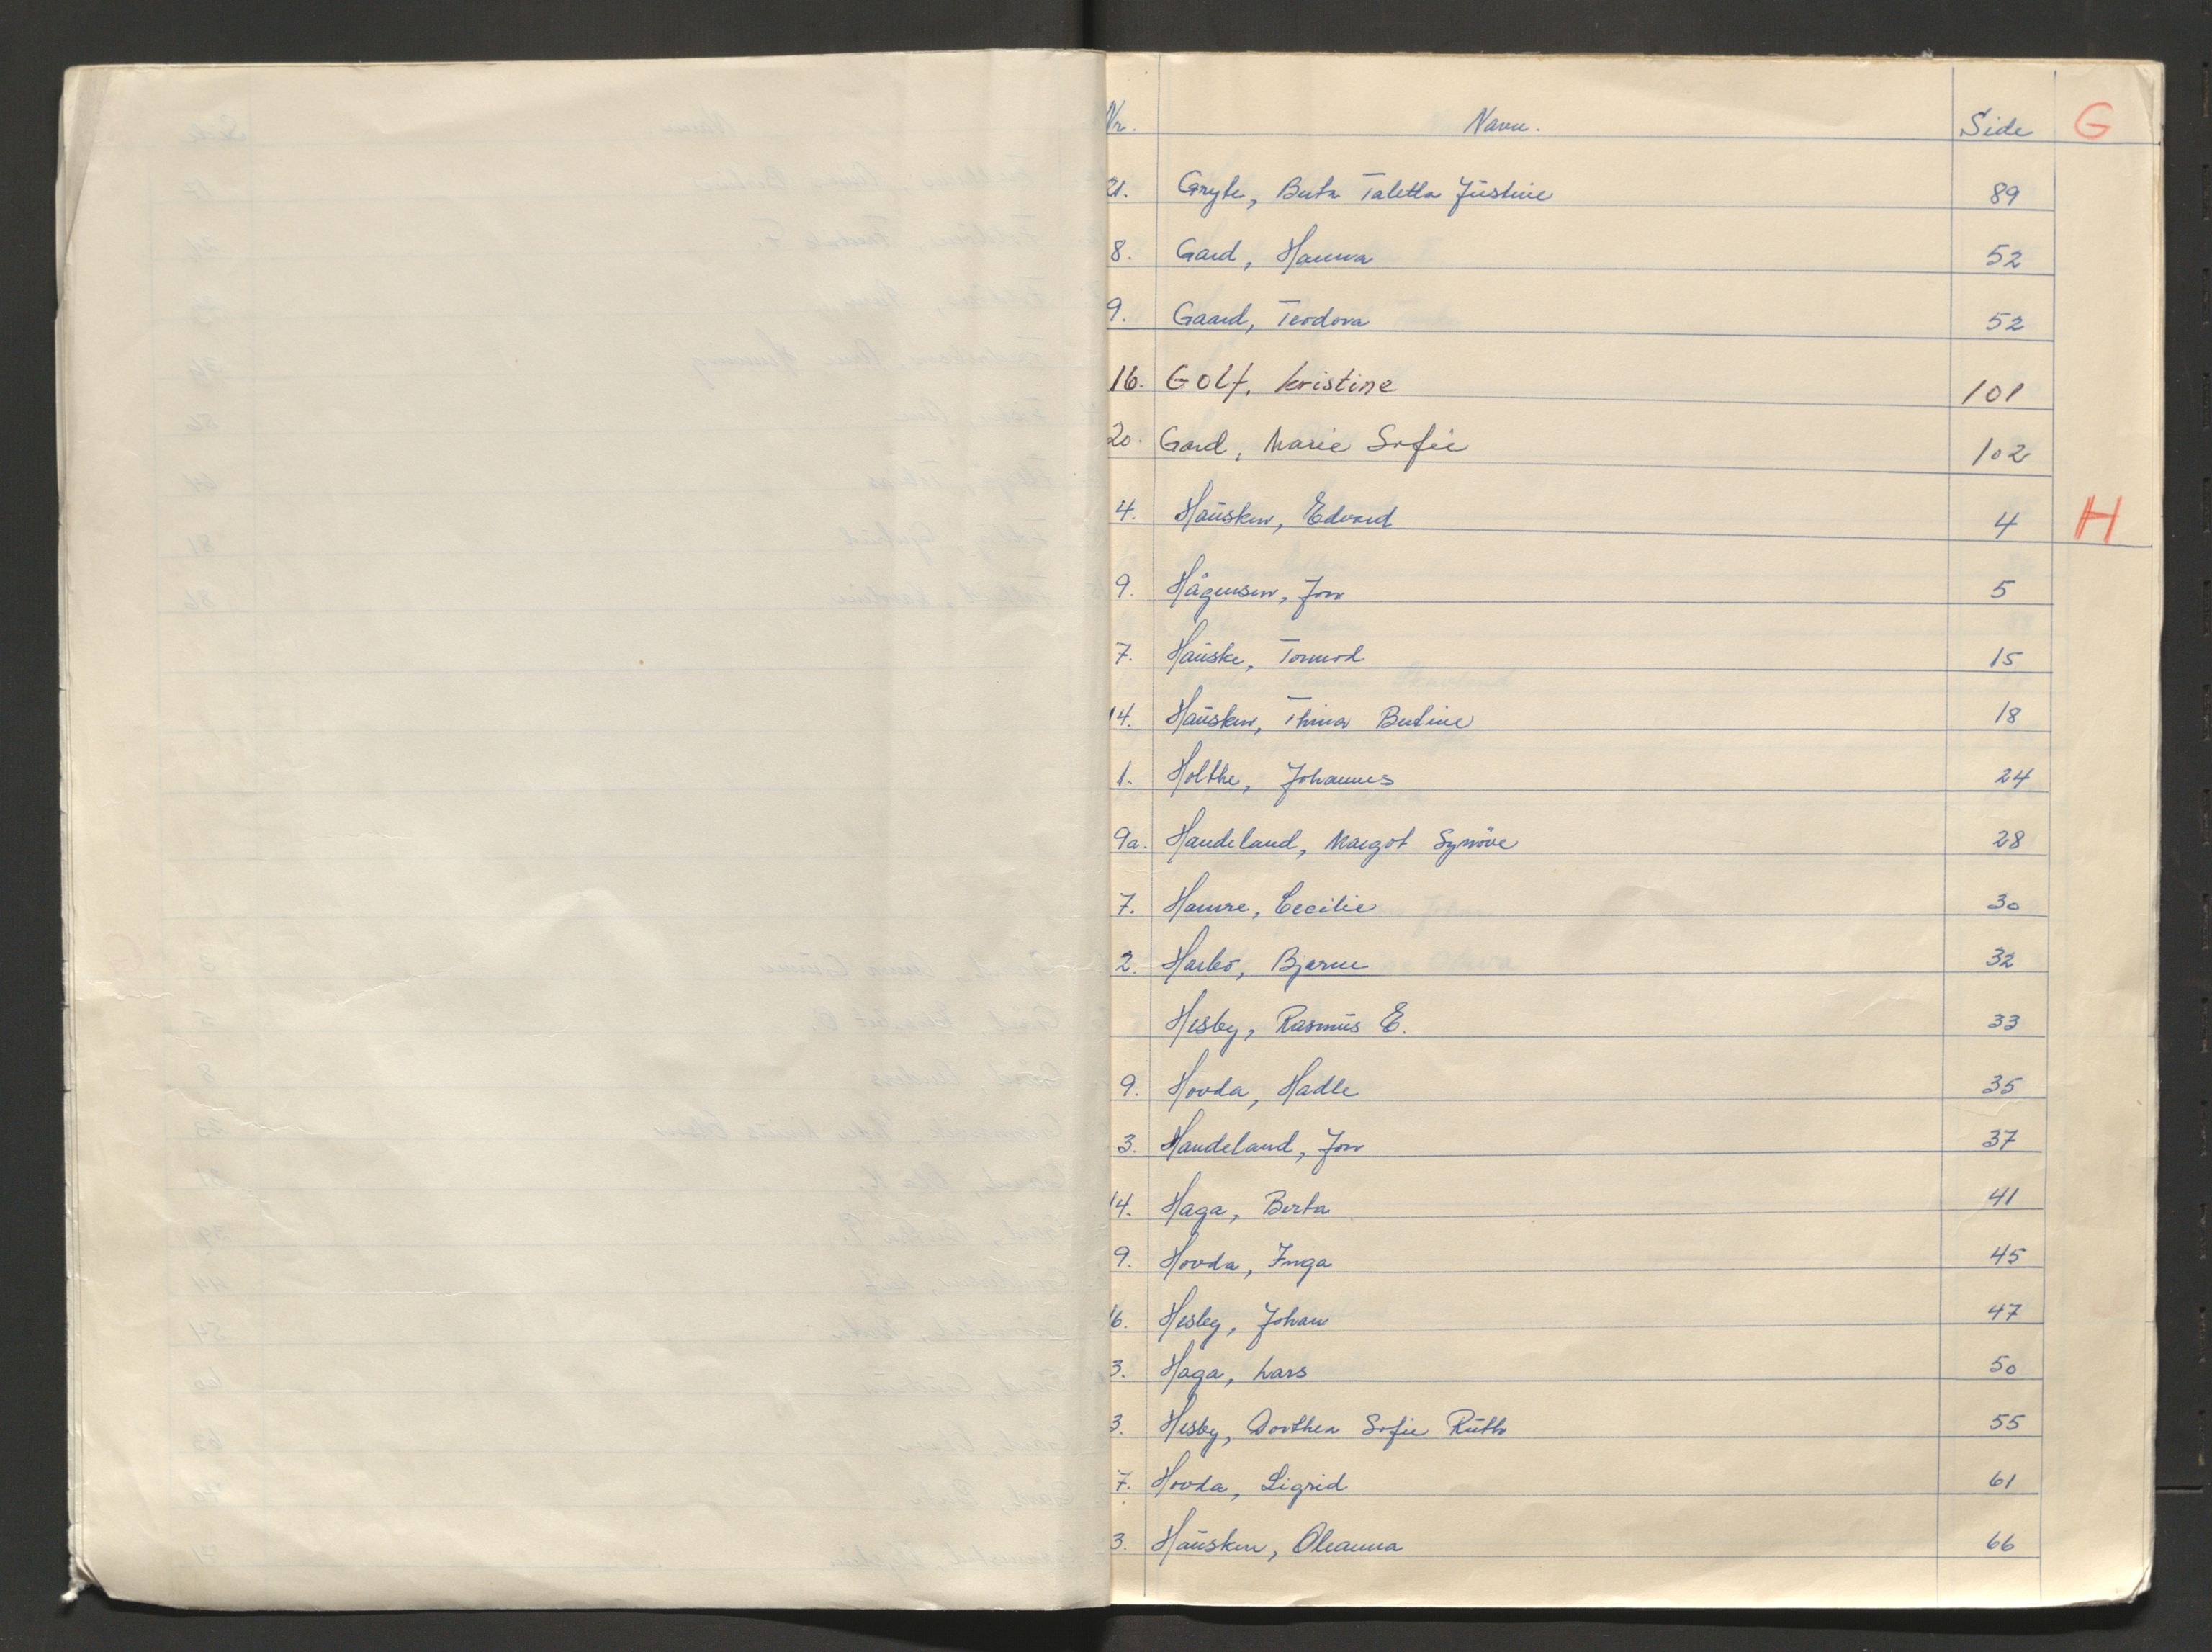 Nr. Navn. Side G
21. Gryte, Berta Taletta Justine 89
8. Gard, Hanna 52
9. Gaard, Teodora 52
16. Golf, Kristine 101
20. Gard, Marie Sofie 102
4. Hausken, Edvard 4 H
9. Hågensen, Jon 5
7. Hauske, Tormod 15
14. Hausken, Thina Bertine 18
1. Holthe, Johannes 24
9a. Handeland, Margot Synnöve 28
7. Hamre, Cecilie 30
2. Harbö, Bjarne 32
Hesby, Rasmus E. 33
9. Hovda, Hadle 35
3. Handeland, Jon 37
14. Haga, Berta 41
9. Hovda, Inga 45
16. Hesby, Johan 47
3. Haga, Lars 50
3. Hesby, Dorthea Sofie Ruth 55
7. Hovda, Sigrid 61
3. Hausken, Oleanna 66